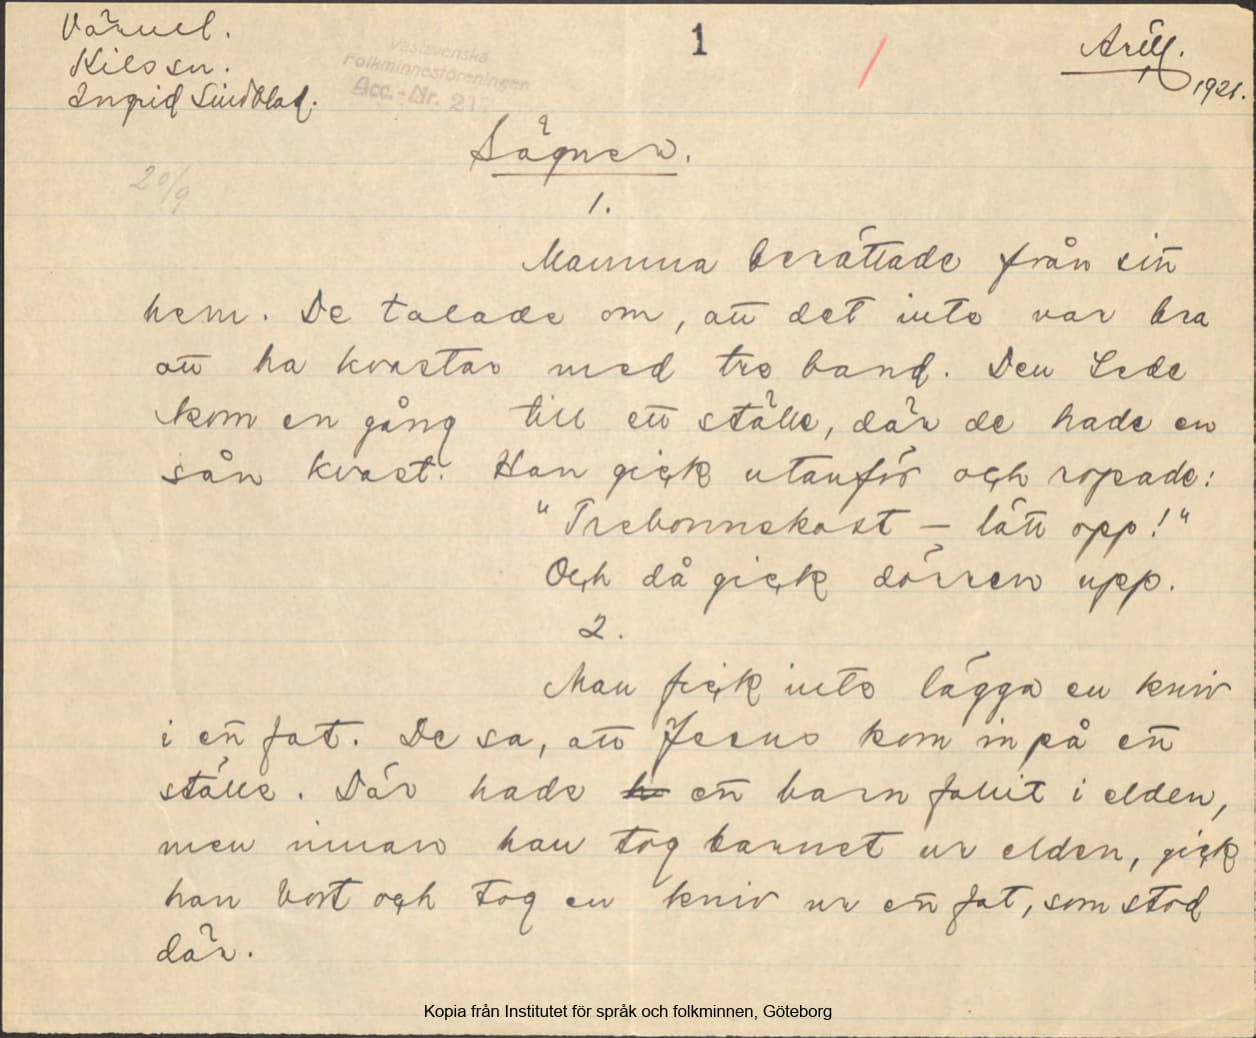 Värml.
Kilssn.
Ingrid Lindblad.
Västsvenska
Folkminnesföreningen
Acc.-Nr. 217
1
Arill.
1921.
Sägner.
20/9
1.
Mamma berättade från sitt
hem. De talade om, att det inte var bra
att ha kvastar med tre band. Den Lede
kom en gång till ett ställe, där de hade en
sån kvast. Han gick utanför och ropade:
"Trebonnekvast – lätt opp!"
Och då gick dörren upp.
2.
Man fick inte lägga en kniv
i ett fat. De sa, att Jesus kom in på ett
ställe. Där hade ett barn fallit i elden,
men innan han tog barnet ur elden, gick
han bort och tog en kniv ur ett fat, som stod
där.
Kopia från Institutet för språk och folkminnen, Göteborg